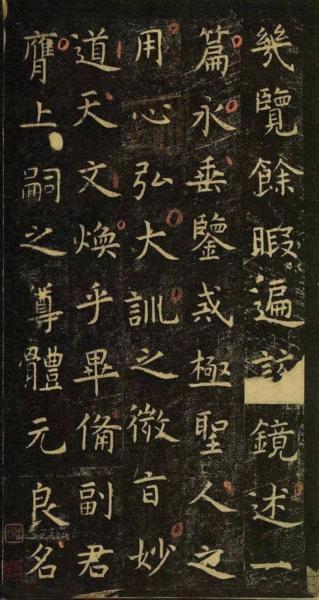 幾覽餘暇遍鏡述一
篇永垂鑒戒極聖人之
用心弘大訓之微旨妙
道天文煥乎畢備副君
膺上嗣之尊體元良名